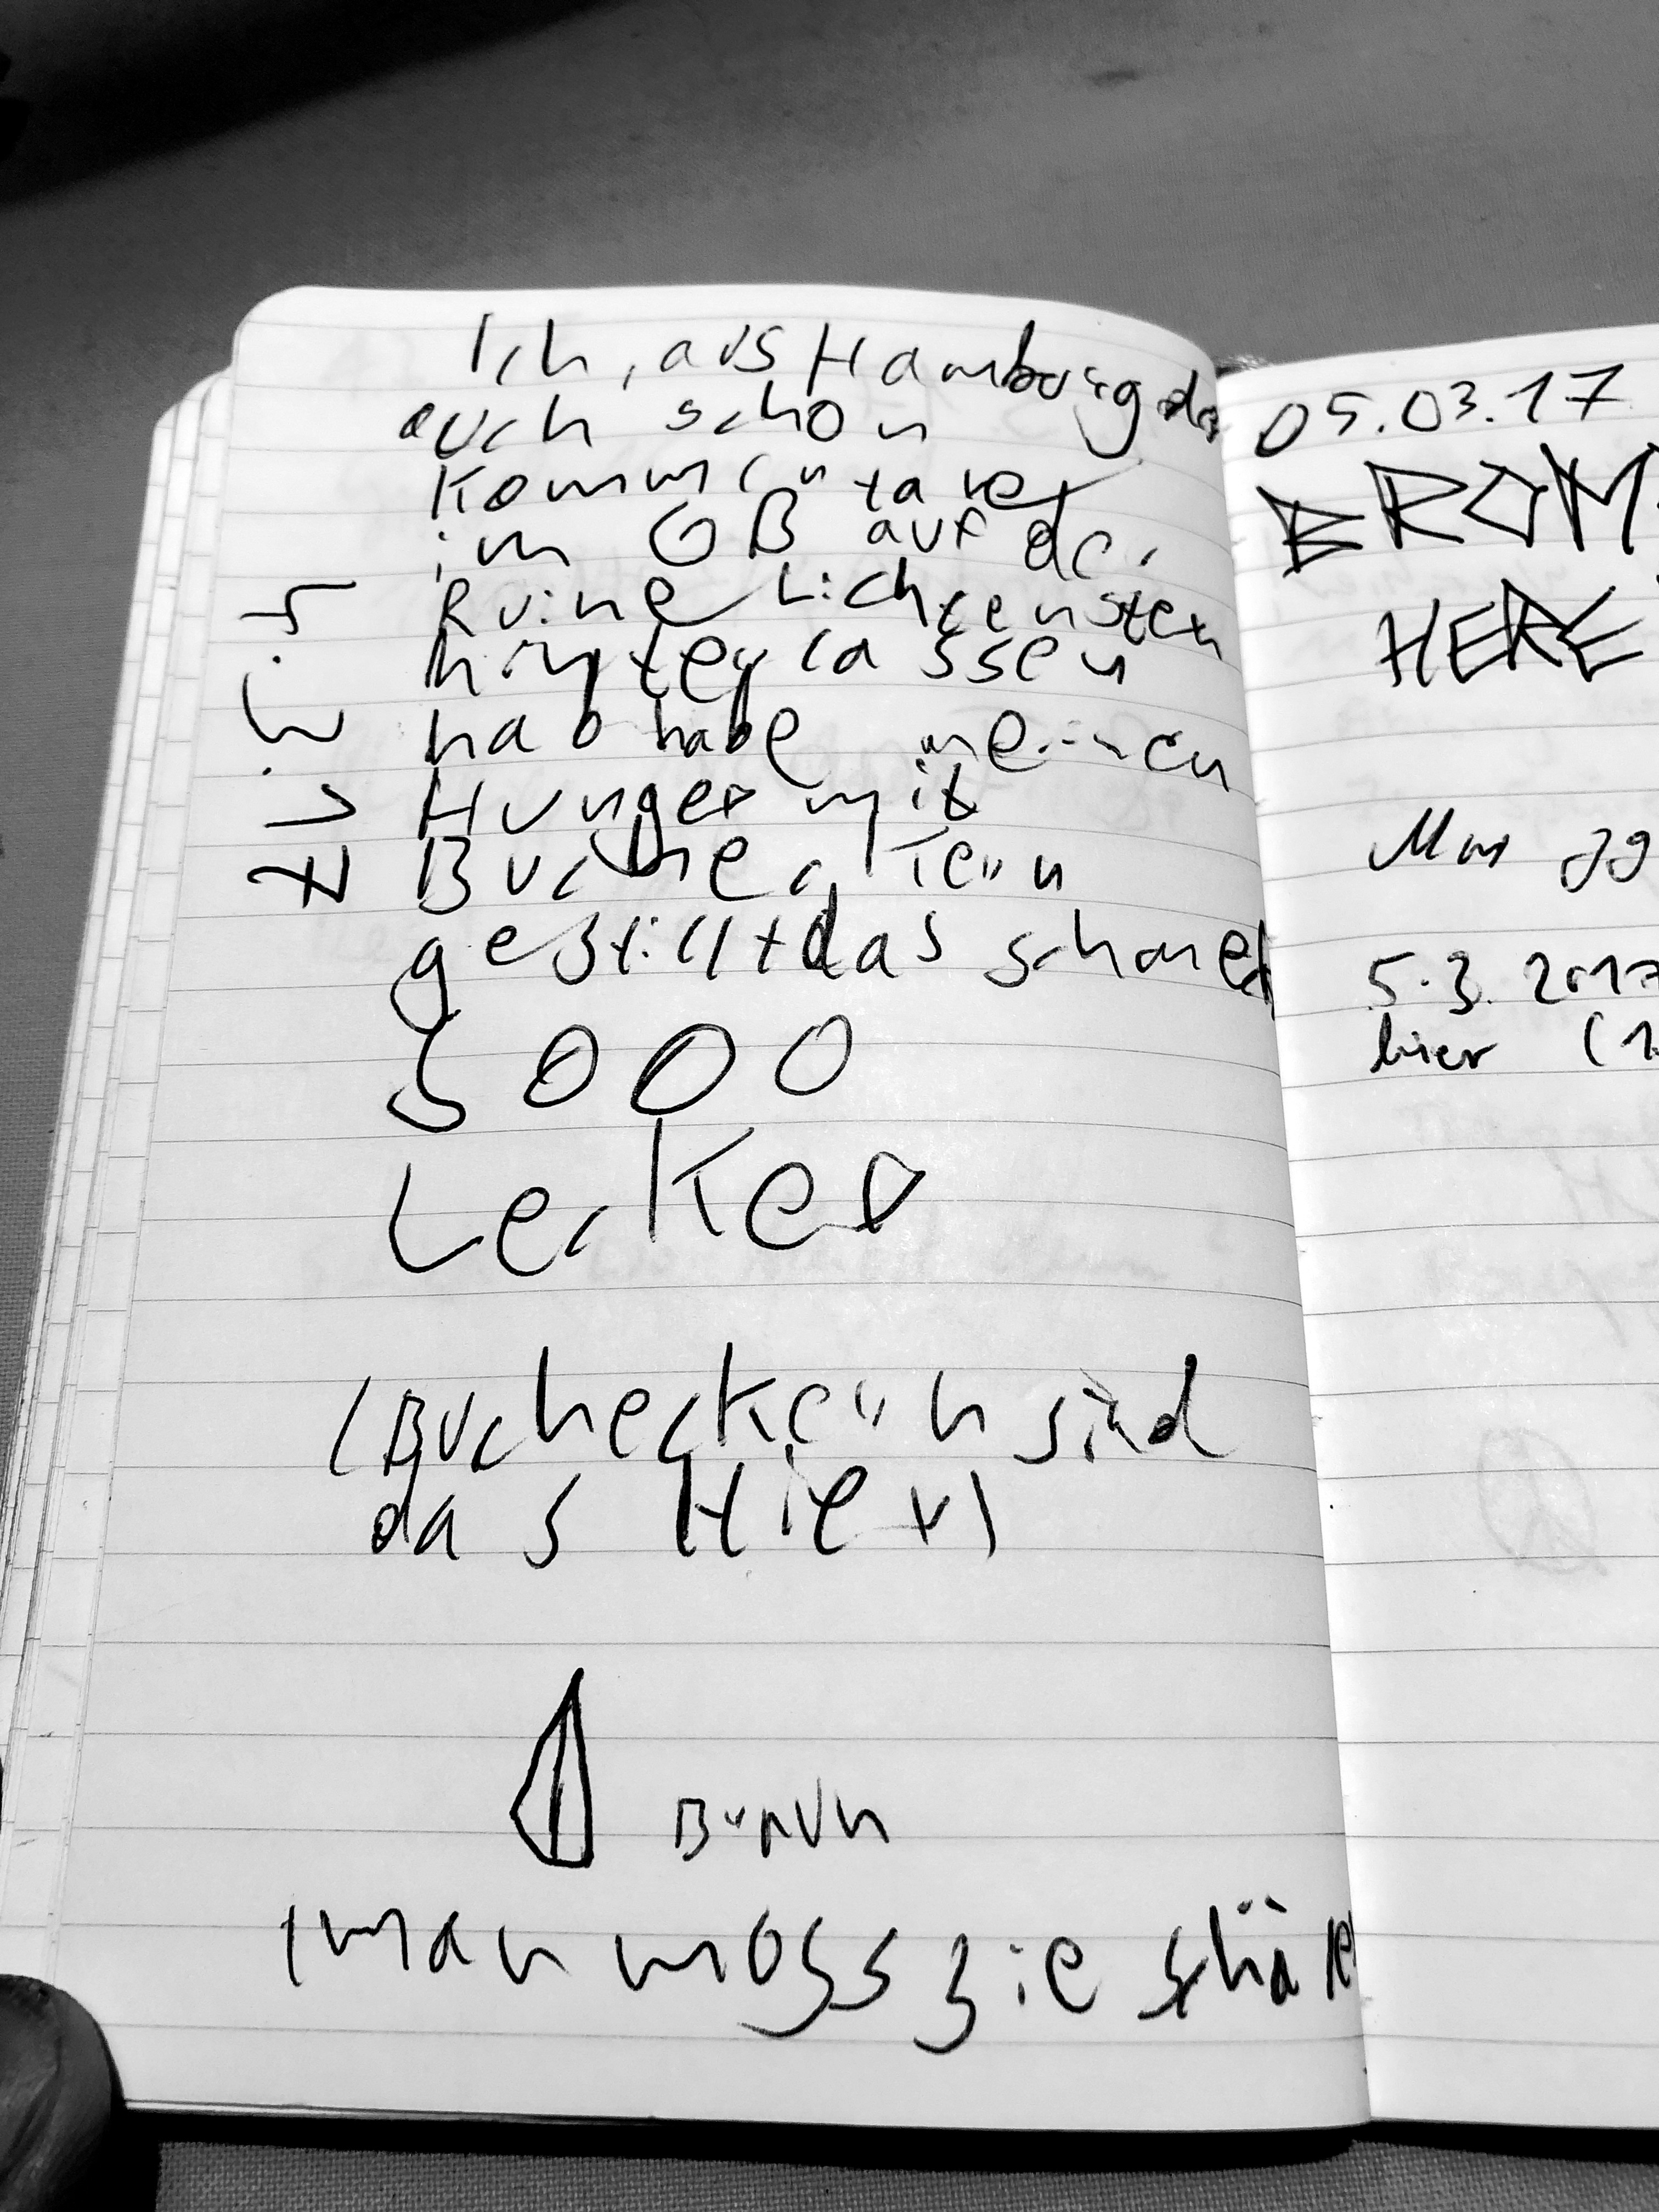 Ich, aus Hamburg da
auch schon
Kommentare
im GB auf der
Ruine Lichtenstein
hinterlassen
hab habe meinen
Hunger mit
Bucheckern
gestillt das schmekt
SOOO
Lecker
(Bucheckern sind
das Hier)
Braun
(man muss sie schäle
05.03.17
BROM
HERE
5.3.2017
hier (1